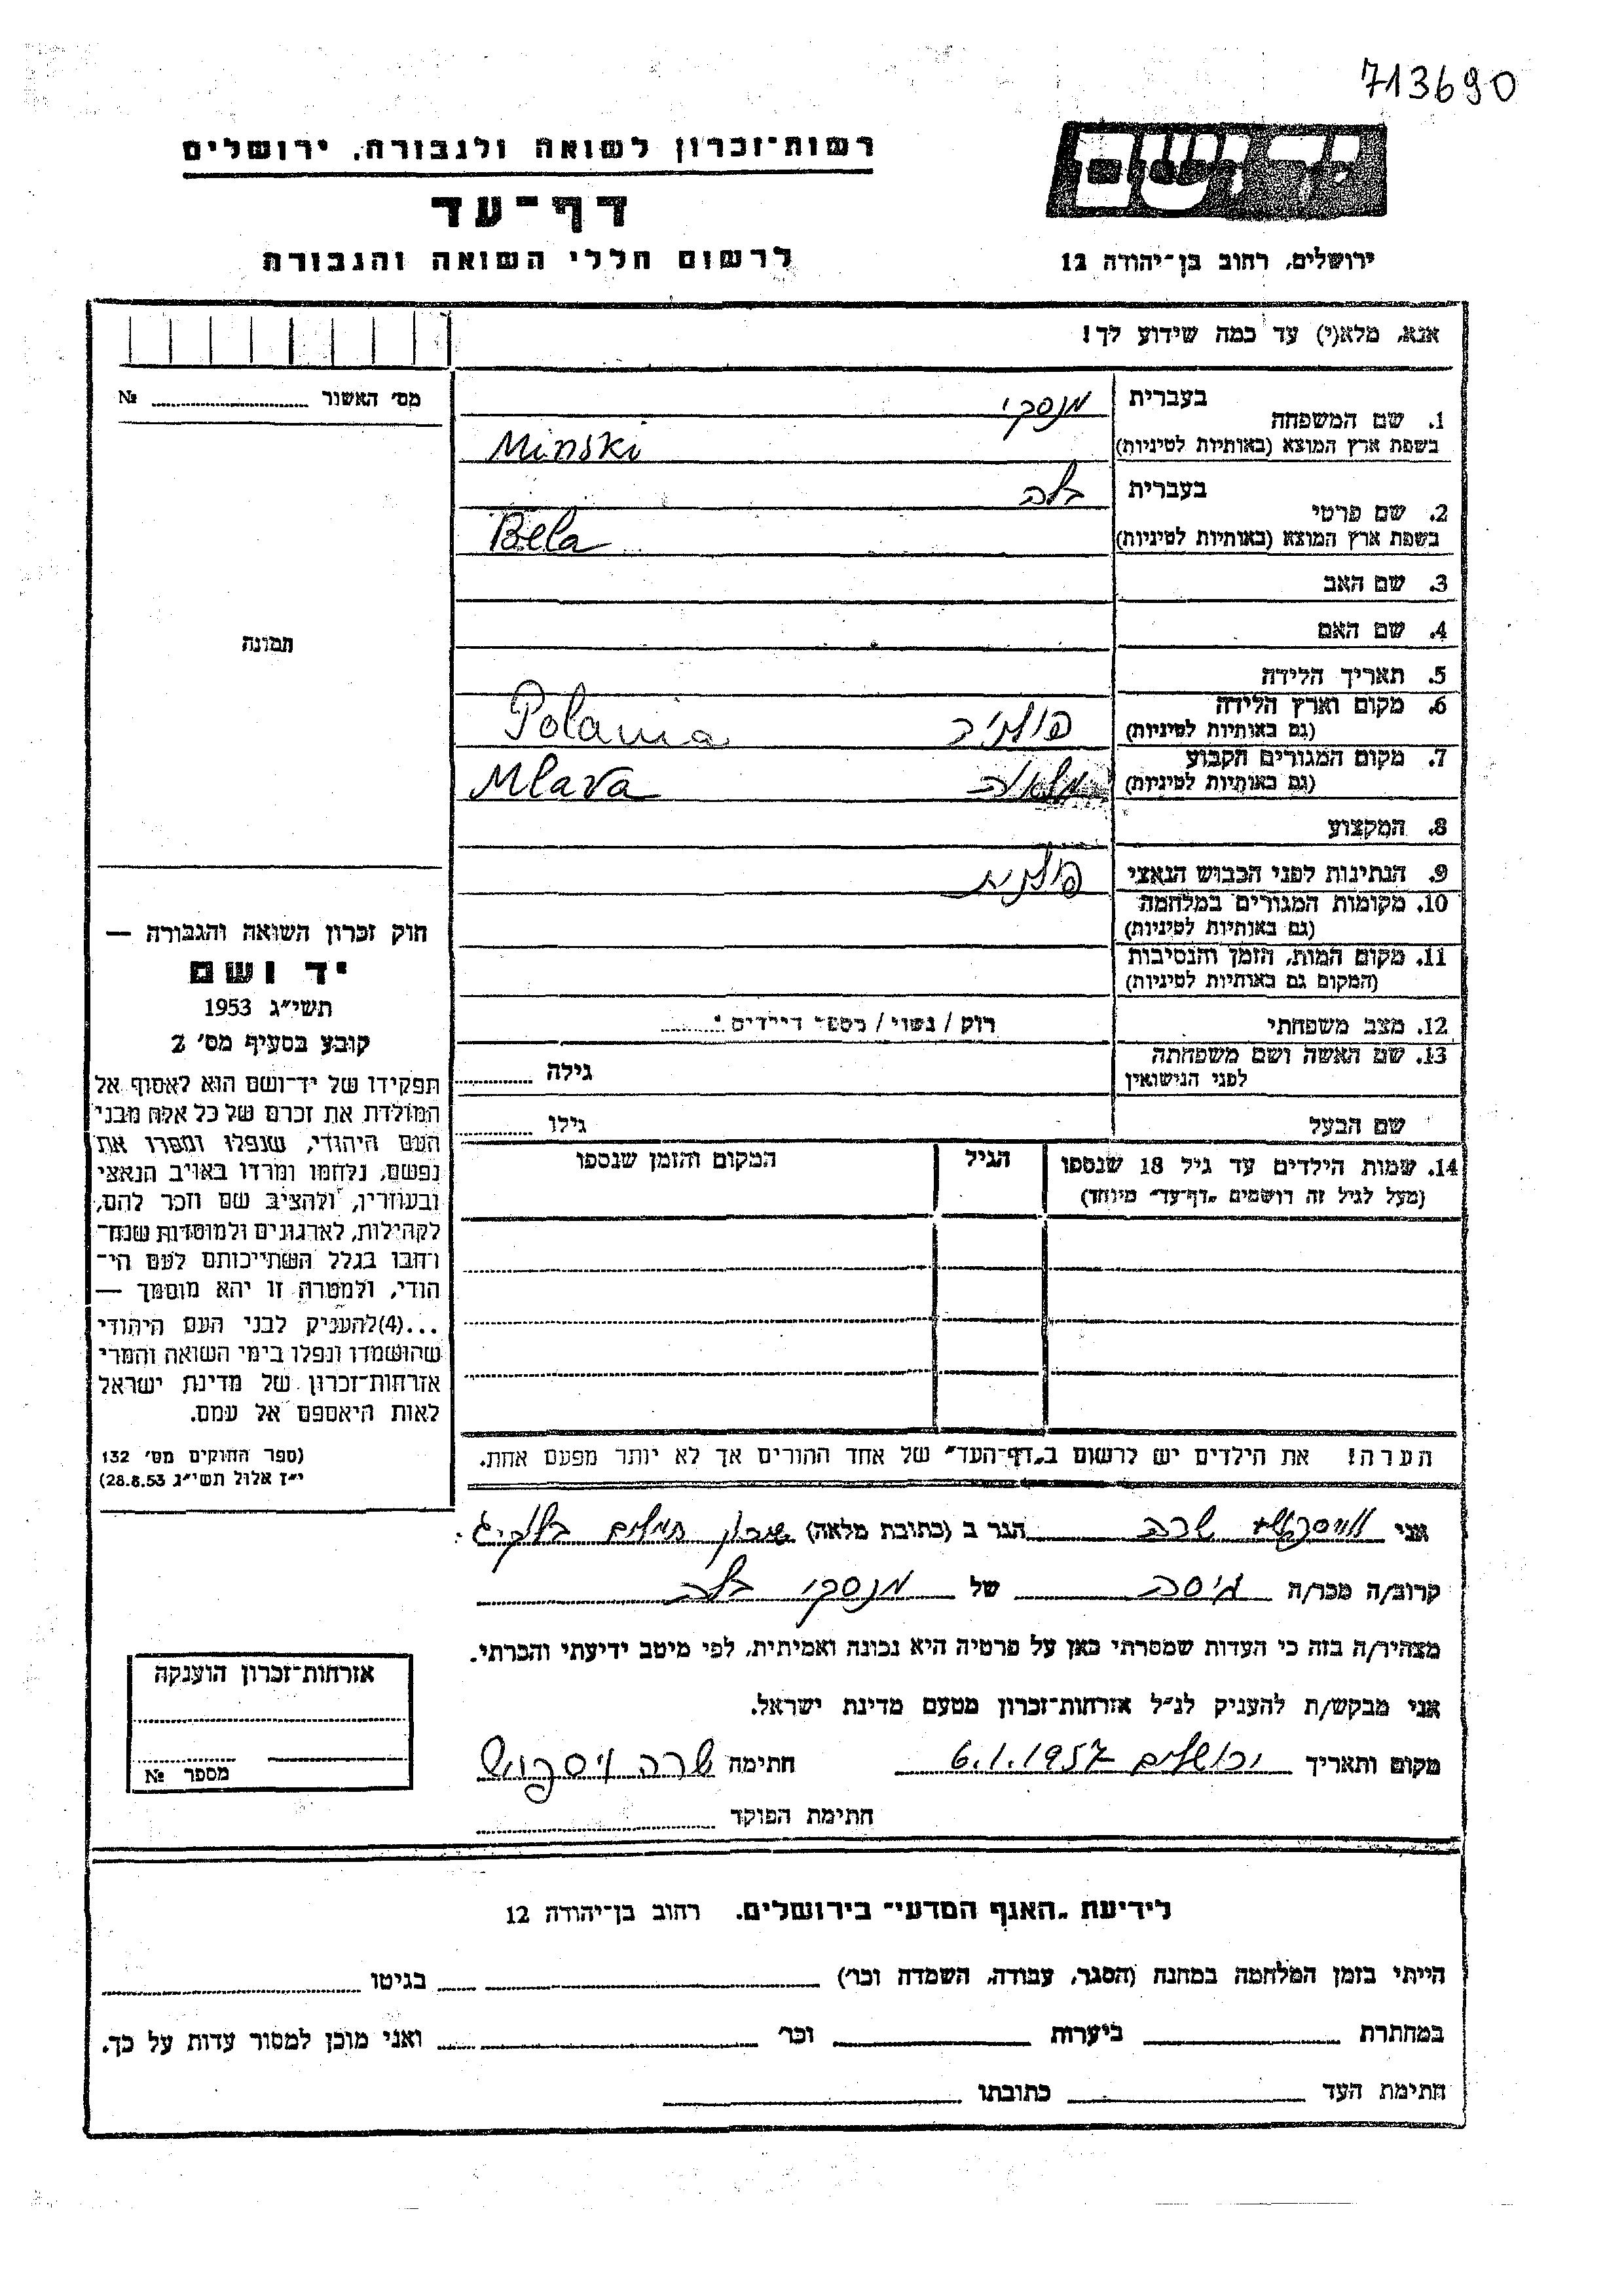 713690
יד ושם
רשות־זכרון לשואה ולגבורה, ירושלים
דף־עד
לרשום חללי השואה והגבורה
ירושלים, רחוב בן־יהודה 12
אנא, מלא(י) עד כמה שידוע לך!
מס׳ האשור № 
1. שם המשפחה
בעברית מנסקי
בשפת ארץ המוצא (באותיות לטיניות) Minski
2. שם פרטי
בעברית בלה
בשפת ארץ המוצא (באותיות לטיניות) Bela
3. שם האב
4. שם האם
5. תאריך הלידה
6. מקום וארץ הלידה
(גם באותיות לטיניות) פולניה Polania
7. מקום המגורים הקבוע
(גם באותיות לטיניות) מלאוה Mlava
8. המקצוע
9. הנתינות לפני הכבוש הנאצי פולנית
10. מקומות המגורים במלחמה
(גם באותיות לטיניות)
11. מקום המות, הזמן והנסיבות
(המקום גם באותיות לטיניות)
12. מצב משפחתי רוק / נשוי / מספר הילדים
13. שם האשה ושם משפחתה
לפני הנישואין גילה
שם הבעל גילו
14. שמות הילדים עד גיל 18 שנספו הגיל המקום והזמן שנספו
(מעל לגיל זה רושמים „דף־עד״ מיוחד)
הערה! את הילדים יש לרשום ב„דף־העד״ של אחד ההורים אך לא יותר מפעם אחת.
תמונה
חוק זכרון השואה והגבורה —
יד ושם
תשי״ג 1953
קובע בסעיף מס׳ 2
תפקידו של יד־ושם הוא לאסוף אל
המולדת את זכרם של כל אלה מבני
העם היהודי, שנפלו ומסרו את
נפשם, נלחמו ומרדו באויב הנאצי
ובעוזריו, ולהציב שם וזכר להם,
לקהילות, לארגונים ולמוסדות שנח־
רבו בגלל השתייכותם לעם הי־
הודי, ולמטרה זו יהא מוסמך —
...(4)להעניק לבני העם היהודי
שהושמדו ונפלו בימי השואה והמרי
אזרחות־זכרון של מדינת ישראל
לאות היאספם אל עמם.
(ספר החוקים מס׳ 132
י״ז אלול תשי״ג 28.8.53)
אני שרה הגר ב (כתובת מלאה)
קרוב/ה מכר/ה גיסה של מנסקי בלה
מצהיר/ה בזה כי העדות שמסרתי כאן על פרטיה היא נכונה ואמיתית, לפי מיטב ידיעתי והכרתי.
אני מבקש/ת להעניק לנ״ל אזרחות־זכרון מטעם מדינת ישראל.
מקום ותאריך ירושלים 6.1.1957 חתימה שרה
חתימת הפוקד
אזרחות־זכרון הוענקה
מספר №
לידיעת „האגף המדעי״ בירושלים, רחוב בן־יהודה 12
הייתי בזמן המלחמה במחנה (הסגר, עבודה, השמדה וכר׳) בגיטו
במחתרת ביערות וכר׳ ואני מוכן למסור עדות על כך.
חתימת העד כתובתו